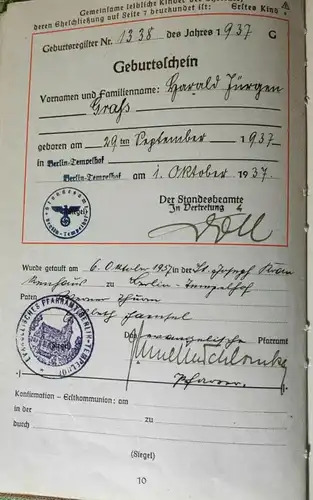 Gemeinsame leibliche Kinder der
deren Eheschließung auf Seite 7 beurkundet ist: Erstes Kind
Geburtsregister Nr. 1338 des Jahres 1937 G
Geburtsschein
Vornamen und Familienname: Harald Jürgen
Graß
geboren am 29ten September 1937
in Berlin-Tempelhof
Berlin-Tempelhof am 1. Oktober 1937.
Der Standesbeamte
In Vertretung
Wurde getauft am 6. Oktober 1937 in der St. Joseph Kran
kenhaus zu Berlin-Tempelhof
Paten Werner
Das evangelische Pfarramt
EVANGELISCHES PFARRAMT BERLIN TEMPELHOF
Pfarrer.
Konfirmation – Erstkommunion: am
in der zu
durch
(Siegel)
10